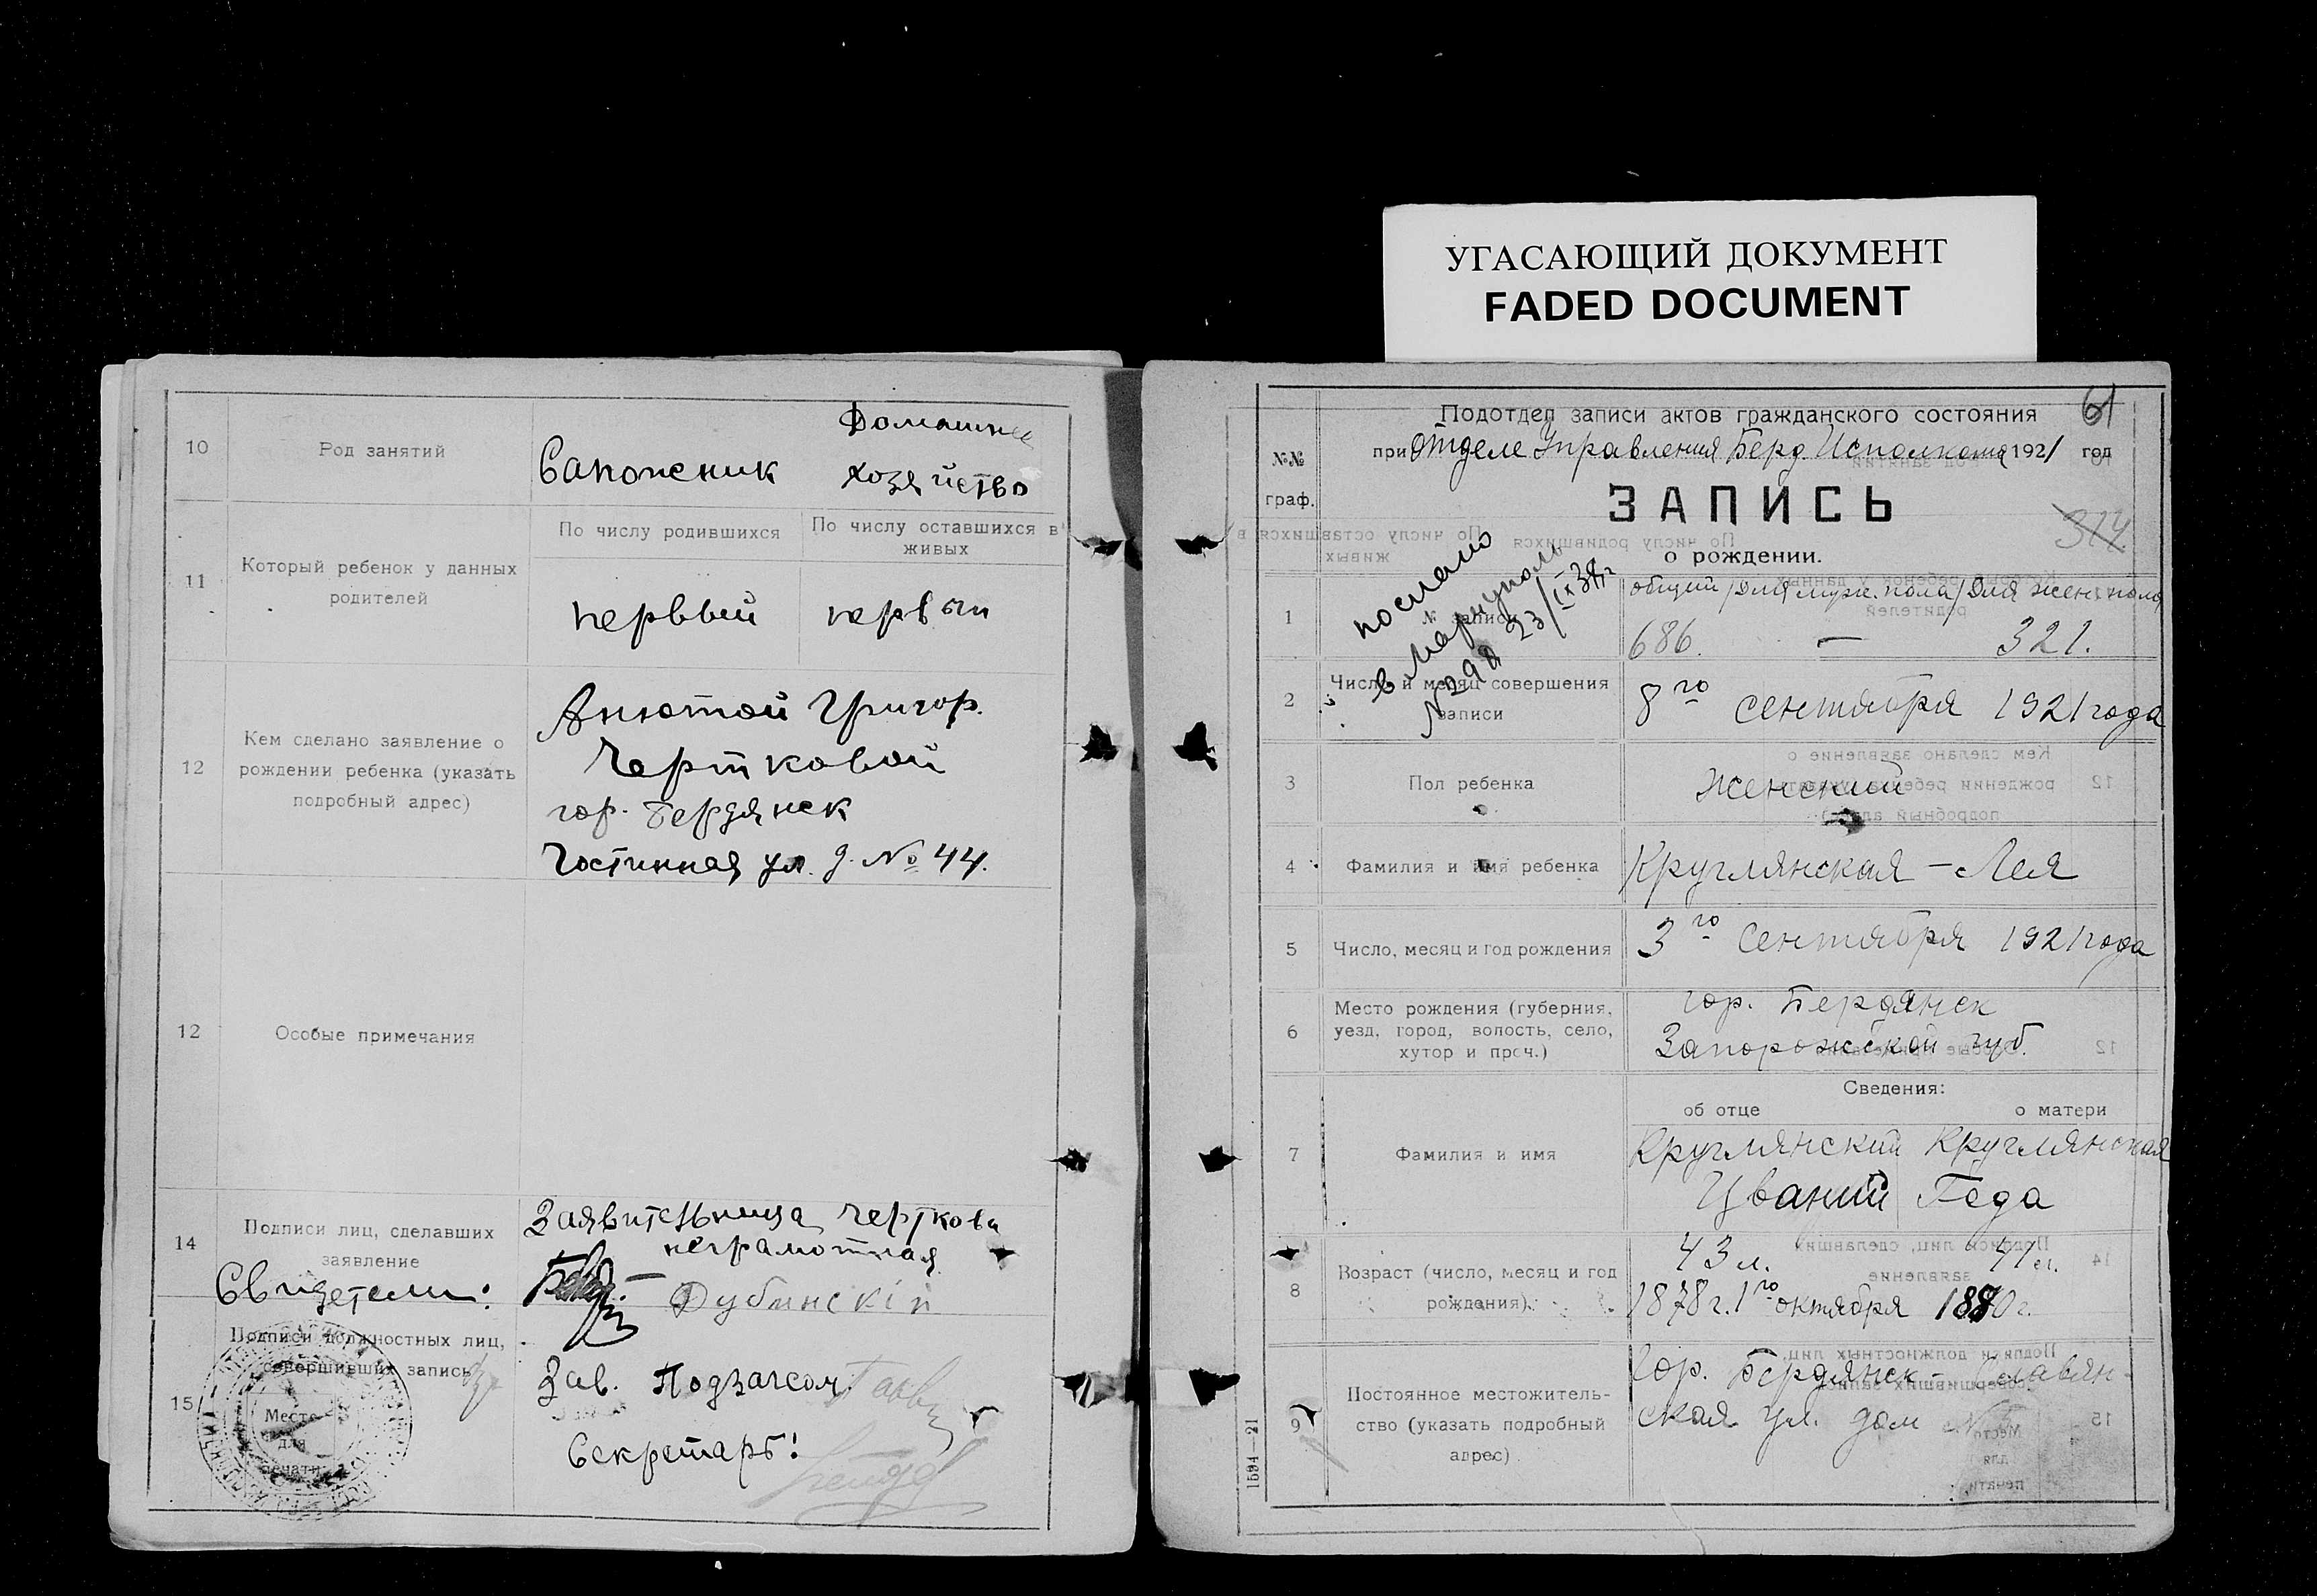 УГАСАЮЩИЙ ДОКУМЕНТ
FADED DOCUMENT
10
Род занятий
Сапожник
Домашнее
хозяйство
11
Который ребенок у данных
родителей
По числу родившихся
По числу оставшихся в
живых
первый
первый
12
Кем сделано заявление о
рождении ребенка (указать
подробный адрес)
Анютой Григор.
Чертковой
гор. Бердянск
Гостинная ул. д. № 44.
12
Особые примечания
14
Подписи лиц, сделавших
заявление
Свидетели:
Заявительница Черткова
неграмотная
Дубинскiй
15
Подписи должностных лиц,
совершивших запись
Место
для
печати
Зав. Подзагсом
Секретарь!
61
Подотдел записи актов гражданского состояния
при Отделе Управления Берд Исполкома 1921 год
№№
граф.
ЗАПИСЬ
314
о рождении.
послано
в Мариуполь
№ 298 23/IX
1
№ записи
общий / для муж. пола / для жен. пола
686. — 321.
2
Число и месяц совершения
записи
8го сентября 1921 года
3
Пол ребенка
Женский
4
Фамилия и имя ребенка
Круглянская – Лея
5
Число, месяц и год рождения
3го Сентября 1921 года
6
Место рождения (губерния,
уезд, город, волость, село,
хутор и проч.)
гор. Бердянск
Запорожской губ.
Сведения:
об отце
о матери
7
Фамилия и имя
Круглянский
Круглянская
8
Возраст (число, месяц и год
рождения)
43 л.
41 л.
1878 г. 1го октября
1880 г.
9
Постоянное местожитель-
ство (указать подробный
адрес)
Гор. Бердянск – Славян-
ская ул. дом
1594—21